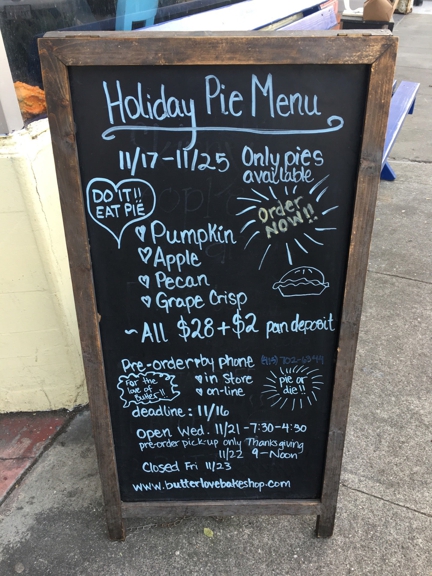 Holiday Pie Menu
11/17-11/25 Only pies available
DO IT!!
EAT PIE
Order
NOW!!
♡ Pumpkin
♡ Apple
♡ Pecan
♡ Grape Crisp
~ All $28+$2 pan deposit
Pre-order ♥ by phone
♥ in store
♥ on-line
For the
love of
Butter!!
pie or
die!!
deadline: 11/16
Open Wed. 11/21 - 7:30-4:30
pre-order pick-up only Thanksgiving
11/22 9-Noon
Closed Fri 11/23
www.butterlovebakeshop.com